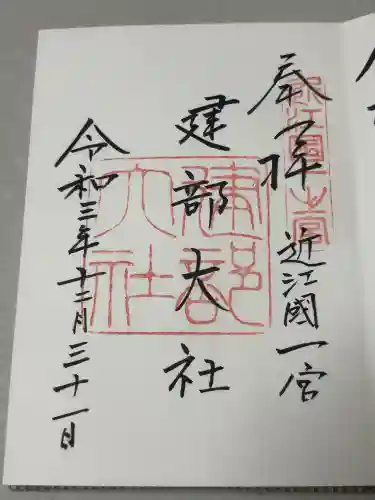 奉拝
近江國一宮
近江國一宮
建部大社
建部大社
令和三年十二月三十一日